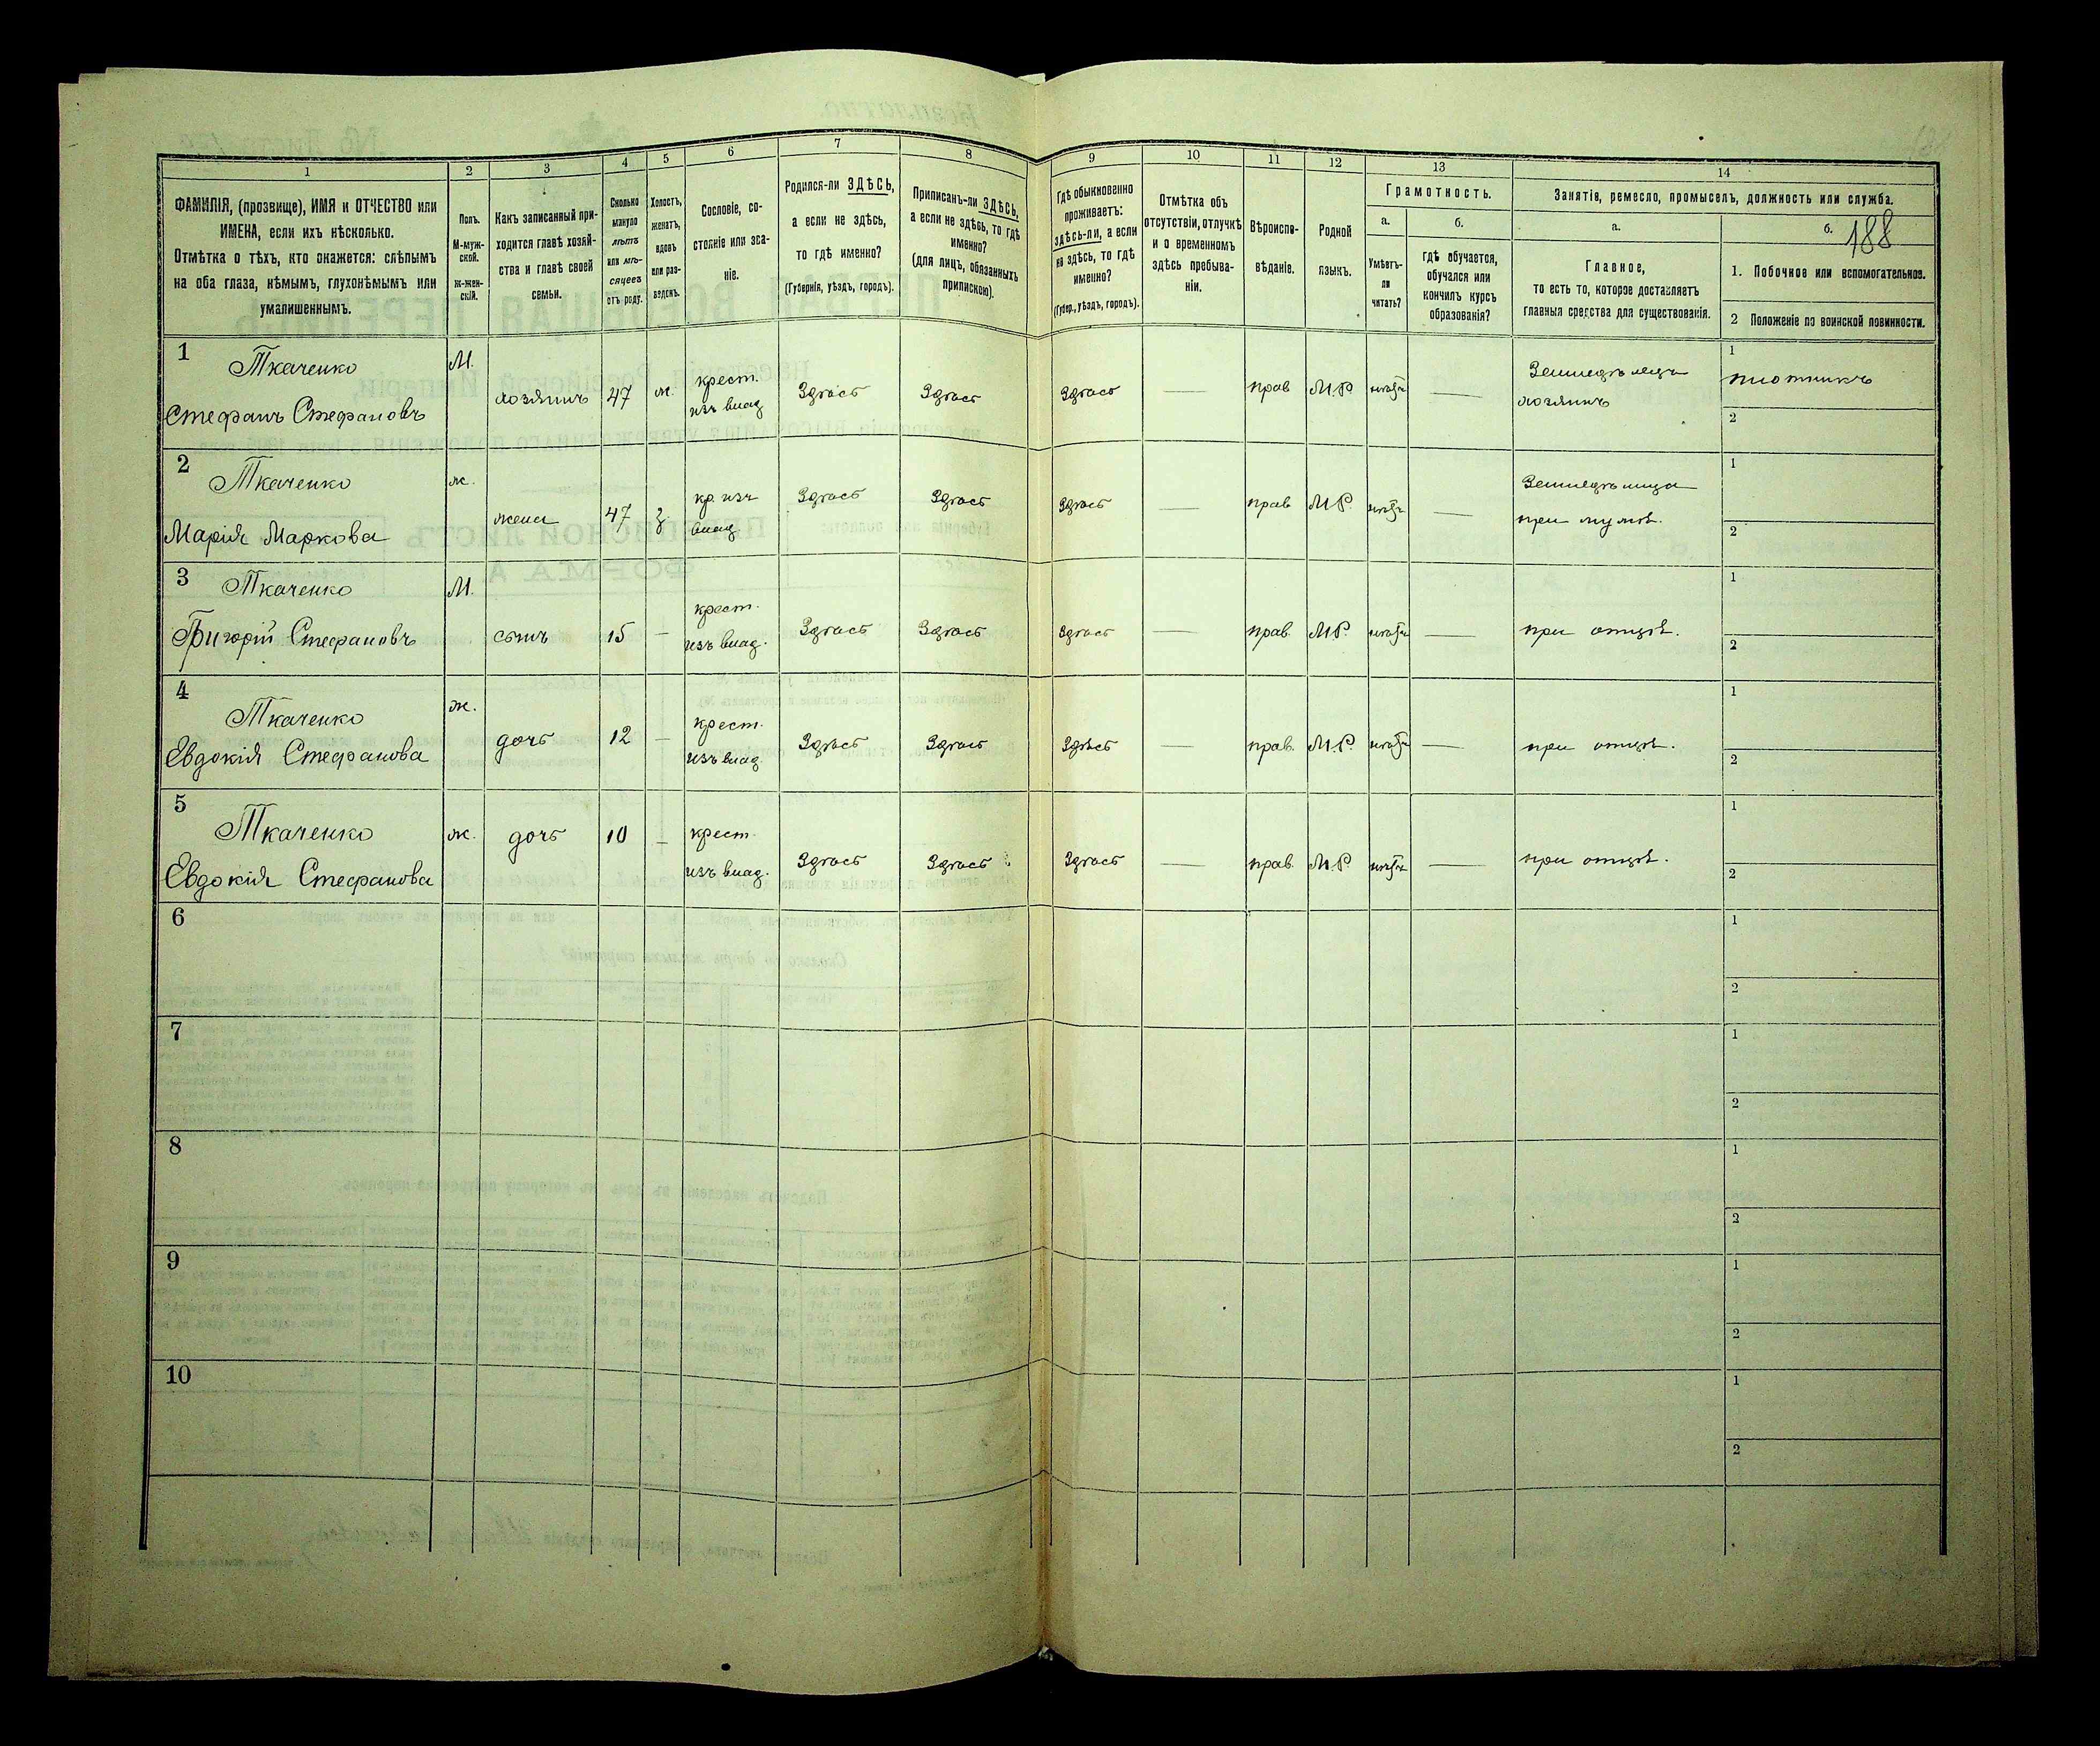 1
2
3
4
5
6
7
8
9
10
11
12
13
14
ФАМИЛІЯ, (прозвище), ИМЯ и ОТЧЕСТВО или
ИМЕНА, если ихъ нѣсколько.
Отмѣтка о тѣхъ, кто окажется: слѣпымъ
на оба глаза, нѣмымъ, глухонѣмымъ или
умалишеннымъ.
Полъ.
М-муж-
ской.
Ж-жен-
скій.
Какъ записанный при-
ходится главѣ хозяй-
ства и главѣ своей
семьи.
Сколько
минуло
лѣтъ
или мѣ-
сяцевъ
отъ роду.
Холостъ,
женатъ,
вдовъ
или раз-
веденъ.
Сословіе, со-
стояніе или зва-
ніе.
Родился-ли ЗДѢСЬ,
а если не здѣсь,
то гдѣ именно?
(Губернія, уѣздъ, городъ).
Приписанъ-ли ЗДѢСЬ,
а если не здѣсь, то гдѣ
именно?
(для лицъ, обязанныхъ
припискою).
Гдѣ обыкновенно
проживаетъ:
здѣсь-ли, а если
не здѣсь, то гдѣ
именно?
(Губер., уѣздъ, городъ).
Отмѣтка объ
отсутствіи, отлучкѣ
и о временномъ
здѣсь пребыва-
ніи.
Вѣроиспо-
вѣданіе.
Родной
языкъ.
Грамотность.
а.
Умѣетъ-
ли
читать?
б.
гдѣ обучается,
обучался или
кончилъ курсъ
образованія?
Занятія, ремесло, промыселъ, должность или служба.
а.
Главное,
то есть то, которое доставляетъ
главныя средства для существованія.
б.
188
1. Побочное или вспомогательное.
2 Положеніе по воинской повинности.
1 Ткаченко
Стефанъ Стефановъ
М.
хозяинъ
47
ж.
крест.
изъ влад.
Здѣсь
Здѣсь
Здѣсь
—
прав
М.Р.
нѣтъ
—
Земледѣлецъ
хозяинъ
1
плотникъ
2
2 Ткаченко
Марія Маркова
ж.
жена
47
з.
кр. изъ
влад.
Здѣсь
Здѣсь
Здѣсь
—
прав
М.Р.
нѣтъ
—
Земледѣлица
при мужѣ.
1
2
3 Ткаченко
Григорій Стефановъ
М.
сынъ
15
—
крест.
изъ влад.
Здѣсь
Здѣсь
Здѣсь
—
прав.
М.Р.
нѣтъ
—
при отцѣ.
1
2
4
Ткаченко
Евдокія Стефанова
ж.
дочь
12
—
крест.
изъ влад
Здѣсь
Здѣсь
Здѣсь
—
прав.
М.Р.
нѣтъ
—
при отцѣ.
1
2
5
Ткаченко
Евдокія Стефанова
ж.
дочь
10
—
крест.
изъ влад.
Здѣсь
Здѣсь
Здѣсь
—
прав.
М.Р.
нѣтъ
—
при отцѣ.
1
2
6
1
2
7
1
2
8
1
2
9
1
2
10
1
2